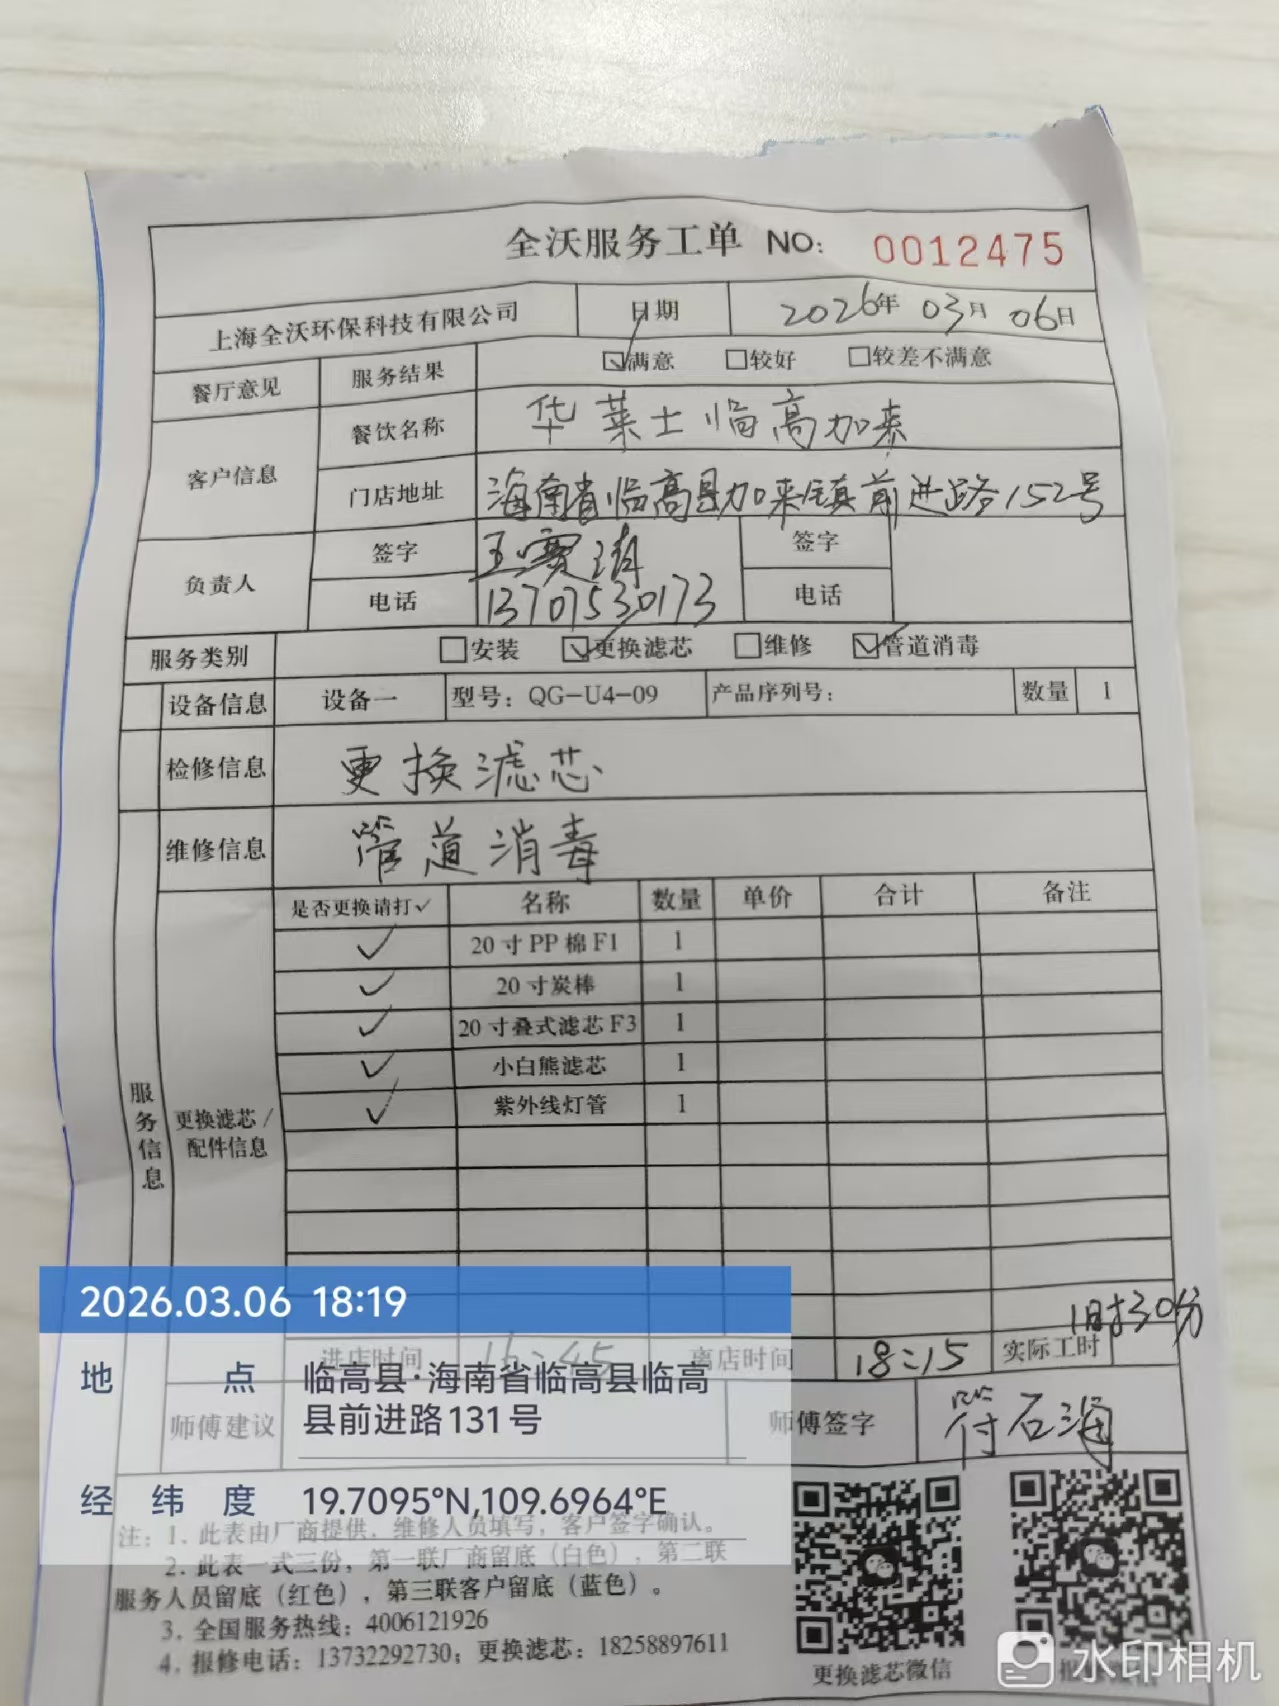 全沃服务工单 NO: 0012475
上海全沃环保科技有限公司 日期 2026年 03月 06日
餐厅意见 服务结果 ☑满意 □较好 □较差不满意
客户信息 餐饮名称 华莱士临高加来
门店地址 海南省临高县加来镇前进路152号
负责人 签字 王 签字
电话 13707530173 电话
服务类别 □安装 ☑更换滤芯 □维修 ☑管道消毒
设备信息 设备一 型号: QG-U4-09 产品序列号: 数量 1
检修信息 更换滤芯
维修信息 管道消毒
服务信息
更换滤芯/
配件信息
是否更换请打✓ 名称 数量 单价 合计 备注
✓ 20寸PP棉F1 1
✓ 20寸炭棒 1
✓ 20寸叠式滤芯F3 1
✓ 小白熊滤芯 1
✓ 紫外线灯管 1
进店时间 16:45 离店时间 18:15 实际工时 1时30分
师傅建议 师傅签字 符石海
2026.03.06 18:19
地 点 临高县·海南省临高县临高
县前进路131号
经 纬 度 19.7095°N,109.6964°E
注: 1. 此表由厂商提供,维修人员填写,客户签字确认。
2. 此表一式三份,第一联厂商留底(白色),第二联
服务人员留底(红色),第三联客户留底(蓝色)。
3. 全国服务热线: 4006121926
4. 报修电话: 13732292730; 更换滤芯: 18258897611
更换滤芯微信
水印相机